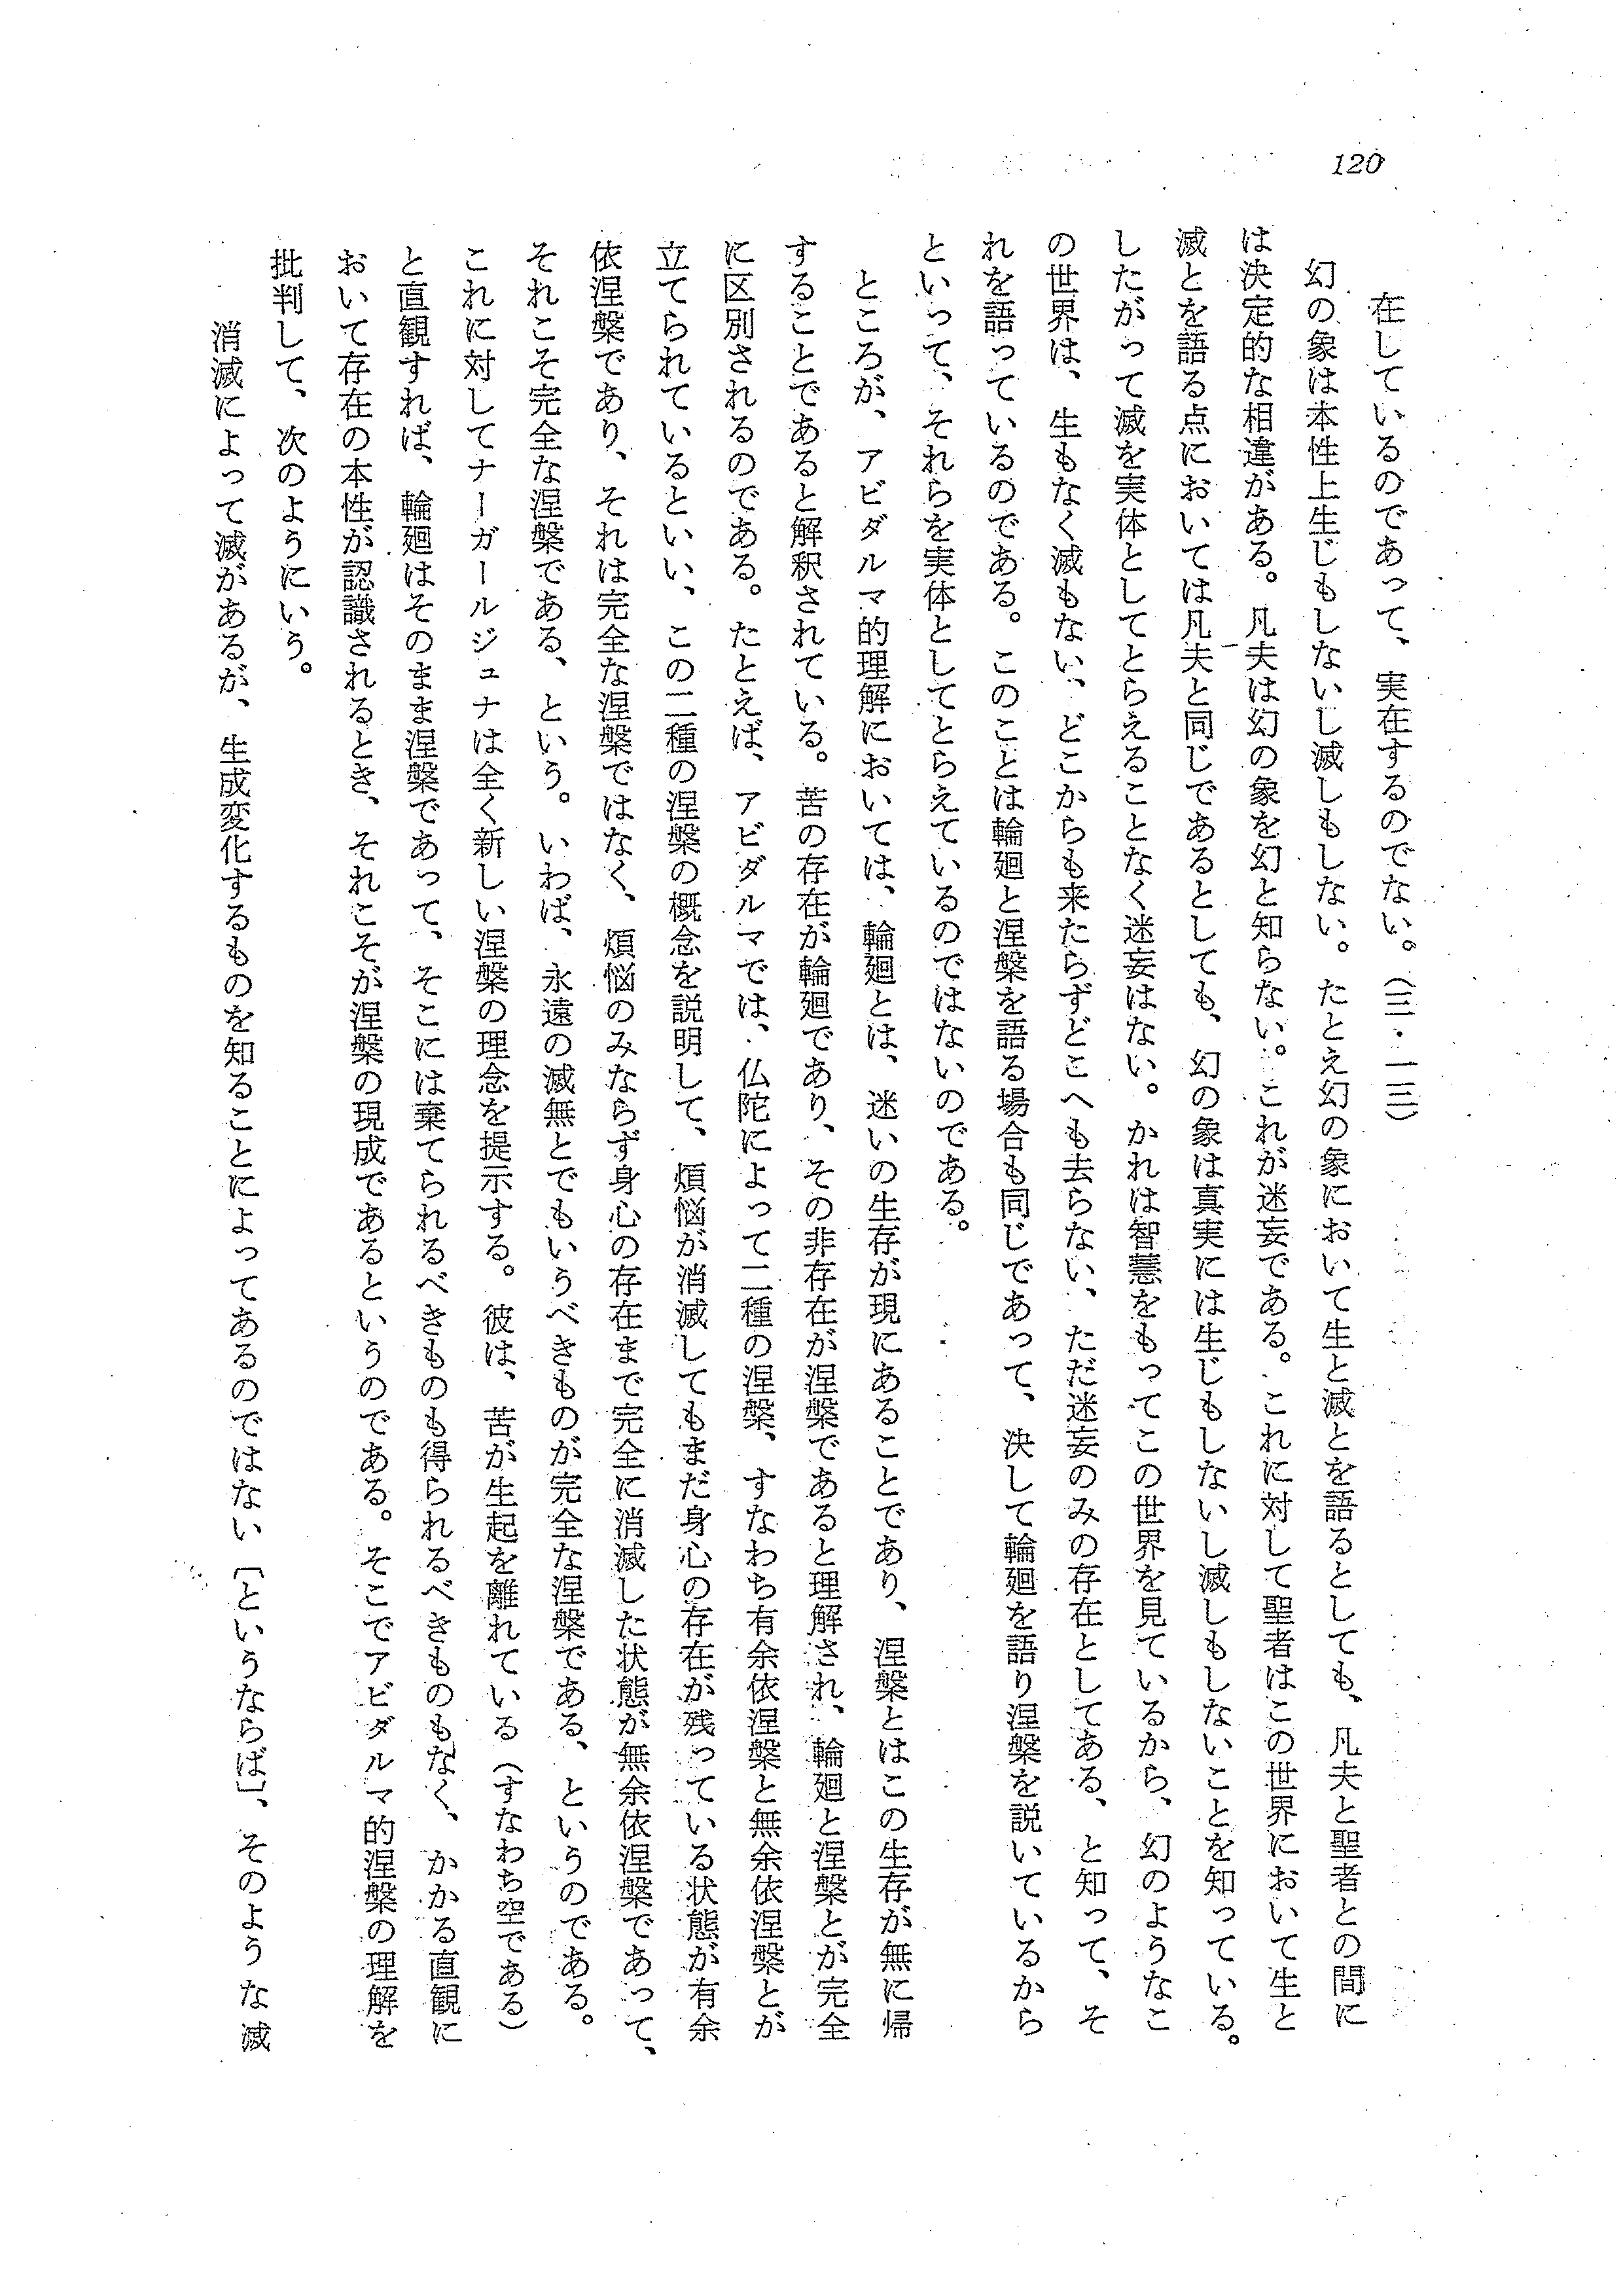 120
在しているのであって、実在するのでない。（三・一三）
幻の象は本性上生じもしないし滅しもしない。たとえ幻の象において生と滅とを語るとしても、凡夫と聖者との間に
は決定的な相違がある。凡夫は幻の象を幻と知らない。これが迷妄である。これに対して聖者はこの世界において生と
滅とを語る点においては凡夫と同じであるとしても、幻の象は真実には生じもしないし滅しもしないことを知っている。
したがって滅を実体としてとらえることなく迷妄はない。かれは智慧をもってこの世界を見ているから、幻のようなこ
の世界は、生もなく滅もない、どこからも来たらずどこへも去らない、ただ迷妄のみの存在としてある、と知って、そ
れを語っているのである。このことは輪廻と涅槃を語る場合も同じであって、決して輪廻を語り涅槃を説いているから
といって、それらを実体としてとらえているのではないのである。
ところが、アビダルマ的理解においては、輪廻とは、迷いの生存が現にあることであり、涅槃とはこの生存が無に帰
することであると解釈されている。苦の存在が輪廻であり、その非存在が涅槃であると理解され、輪廻と涅槃とが完全
に区別されるのである。たとえば、アビダルマでは、仏陀によって二種の涅槃、すなわち有余依涅槃と無余依涅槃とが
立てられているといい、この二種の涅槃の概念を説明して、煩悩が消滅してもまだ身心の存在が残っている状態が有余
依涅槃であり、それは完全な涅槃ではなく、煩悩のみならず身心の存在まで完全に消滅した状態が無余依涅槃であって、
それこそ完全な涅槃である、という。いわば、永遠の滅無とでもいうべきものが完全な涅槃である、というのである。
これに対してナーガールジュナは全く新しい涅槃の理念を提示する。彼は、苦が生起を離れている（すなわち空である）
と直観すれば、輪廻はそのまま涅槃であって、そこには棄てられるべきものも得られるべきものもなく、かかる直観に
おいて存在の本性が認識されるとき、それこそが涅槃の現成であるというのである。そこでアビダルマ的涅槃の理解を
批判して、次のようにいう。
消滅によって滅があるが、生成変化するものを知ることによってあるのではない〔というならば〕、そのような滅